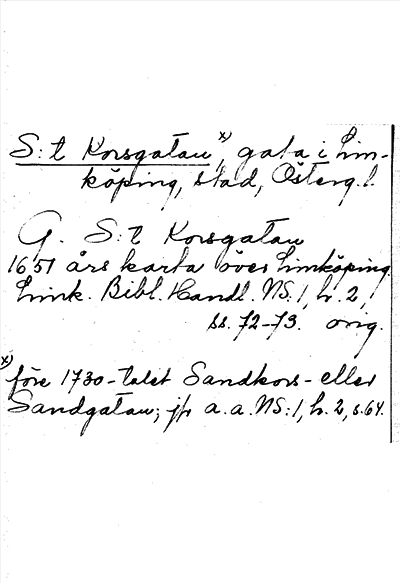 S:t Korsgatan x), gata i Lin-
köping, stad, Österg. l.
G. S:t Korsgatan
1651 års karta över Linköping
Link. Bibl. Handl. NS. 1, h. 2,
ss. 72-73. orig.
x) före 1730-talet Sandkors- eller
Sandgatan; jfr a.a. NS:1, h. 2, s. 64.